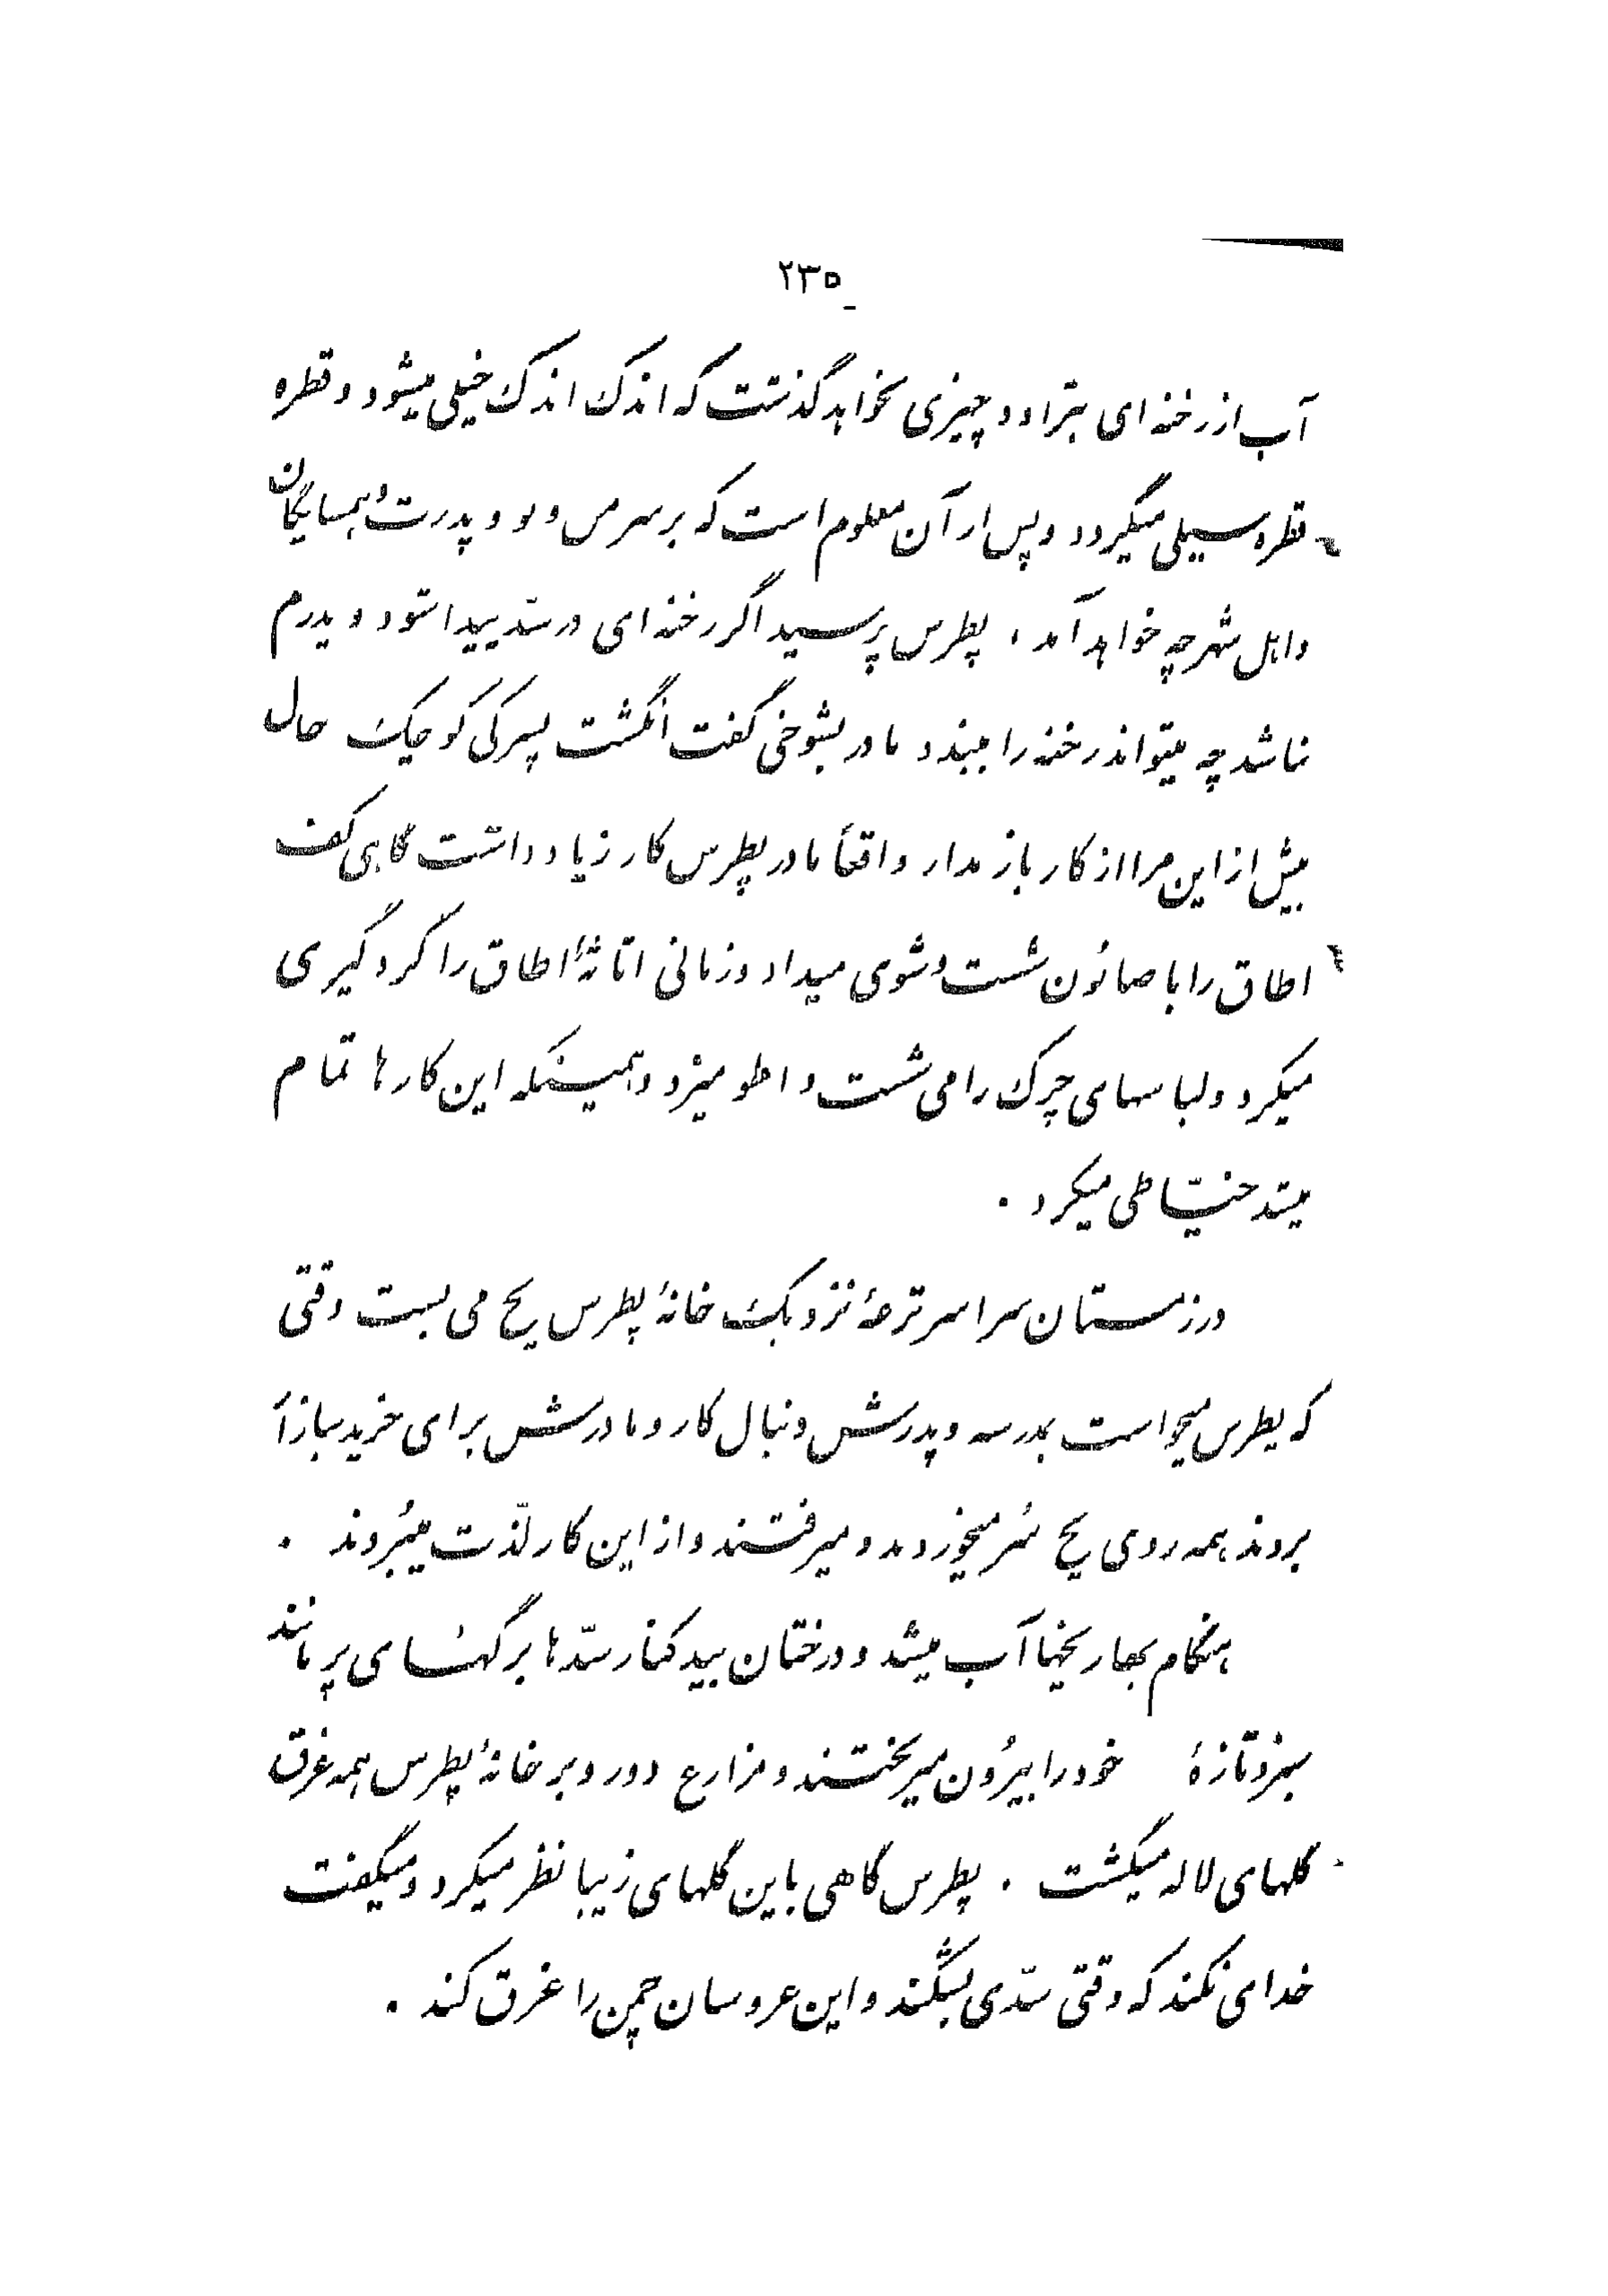 ۲۳۵
آب از رخنه‌ای بتراود چیزی نخواهد گذشت که اندک اندک خیلی میشود و قطره
قطره سیلی میگردد و پس از آن معلوم است که بر سر من و تو و پدرت و همسایگان
و اهل شهر چه خواهد آمد ، پطرس پرسید اگر رخنه‌ای در سدّ پیدا شود و پدرم
نباشد چه میتواند رخنه را ببندد مادر بشوخی گفت انگشت پسرکی کوچک حال
بیش از این مرا از کار باز مدار واقعاً مادر پطرس کار زیاد داشت گاهی کف
اطاق را با صابون شست و شوی میداد و زمانی اثاثهٔ اطاق را گردگیری
میکرد و لباسهای چرک را می شست و اطو میزد و همینکه این کارها تمام
میشد خیّاطی میکرد .
در زمستان سراسر ترعهٔ نزدیک خانهٔ پطرس یخ می بست وقتی
که پطرس میخواست بمدرسه و پدرش دنبال کار و مادرش برای خرید ببازار
بروند همه روی یخ سُر میخوردند و میرفتند و از این کار لذّت میبُردند .
هنگام بهار یخها آب میشد و درختان بید کنار سدّها برگهای پر مانند
سبز و تازهٔ خود را بیرُون میریختند و مزارع دور و بر خانهٔ پطرس همه غرق
گلهای لاله میگشت . پطرس گاهی باین گلهای زیبا نظر میکرد و میگفت
خدای نکند که وقتی سدّی بشکند و این عروسان چمن را غرق کند .